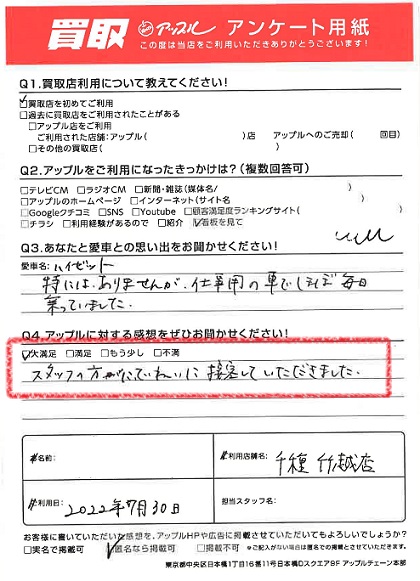 買取 アップル アンケート用紙
この度は当店をご利用いただきありがとうございます！
Q1.買取店利用について教えてください！
☑買取店を初めてご利用
□過去に買取店をご利用されたことがある
□アップル店をご利用
ご利用された店舗:アップル( )店 アップルへのご売却( 回目)
□その他の買取店( )
Q2.アップルをご利用になったきっかけは？(複数回答可)
□テレビCM □ラジオCM □新聞・雑誌(媒体名/ )
□アップルのホームページ □インターネット(サイト名 )
□Googleクチコミ □SNS □Youtube □顧客満足度ランキングサイト( )
□チラシ □利用経験があるので □紹介 ☑看板を見て
Q3.あなたと愛車との思い出をお聞かせください！
愛車名:ハイゼット
特には、ありませんが、仕事用の車でしてほぼ毎日
乗っていました.
Q4.アップルに対する感想をぜひお聞かせください！
☑大満足 □満足 □もう少し □不満
スタッフの方がていねいに接客していただきました.
お名前:
ご利用店舗名: 千種 竹越店
ご利用日: 2022年7月30日
担当スタッフ名:
お客様に書いていただいた感想を、アップルHPや広告に掲載させていただいてもよろしいでしょうか？
□実名で掲載可 ☑匿名なら掲載可 □掲載不可 ※ご記入がない場合は匿名での掲載とさせていただきます。
東京都中央区日本橋1丁目16番11号日本橋DスクエアF アップルチェーン本部